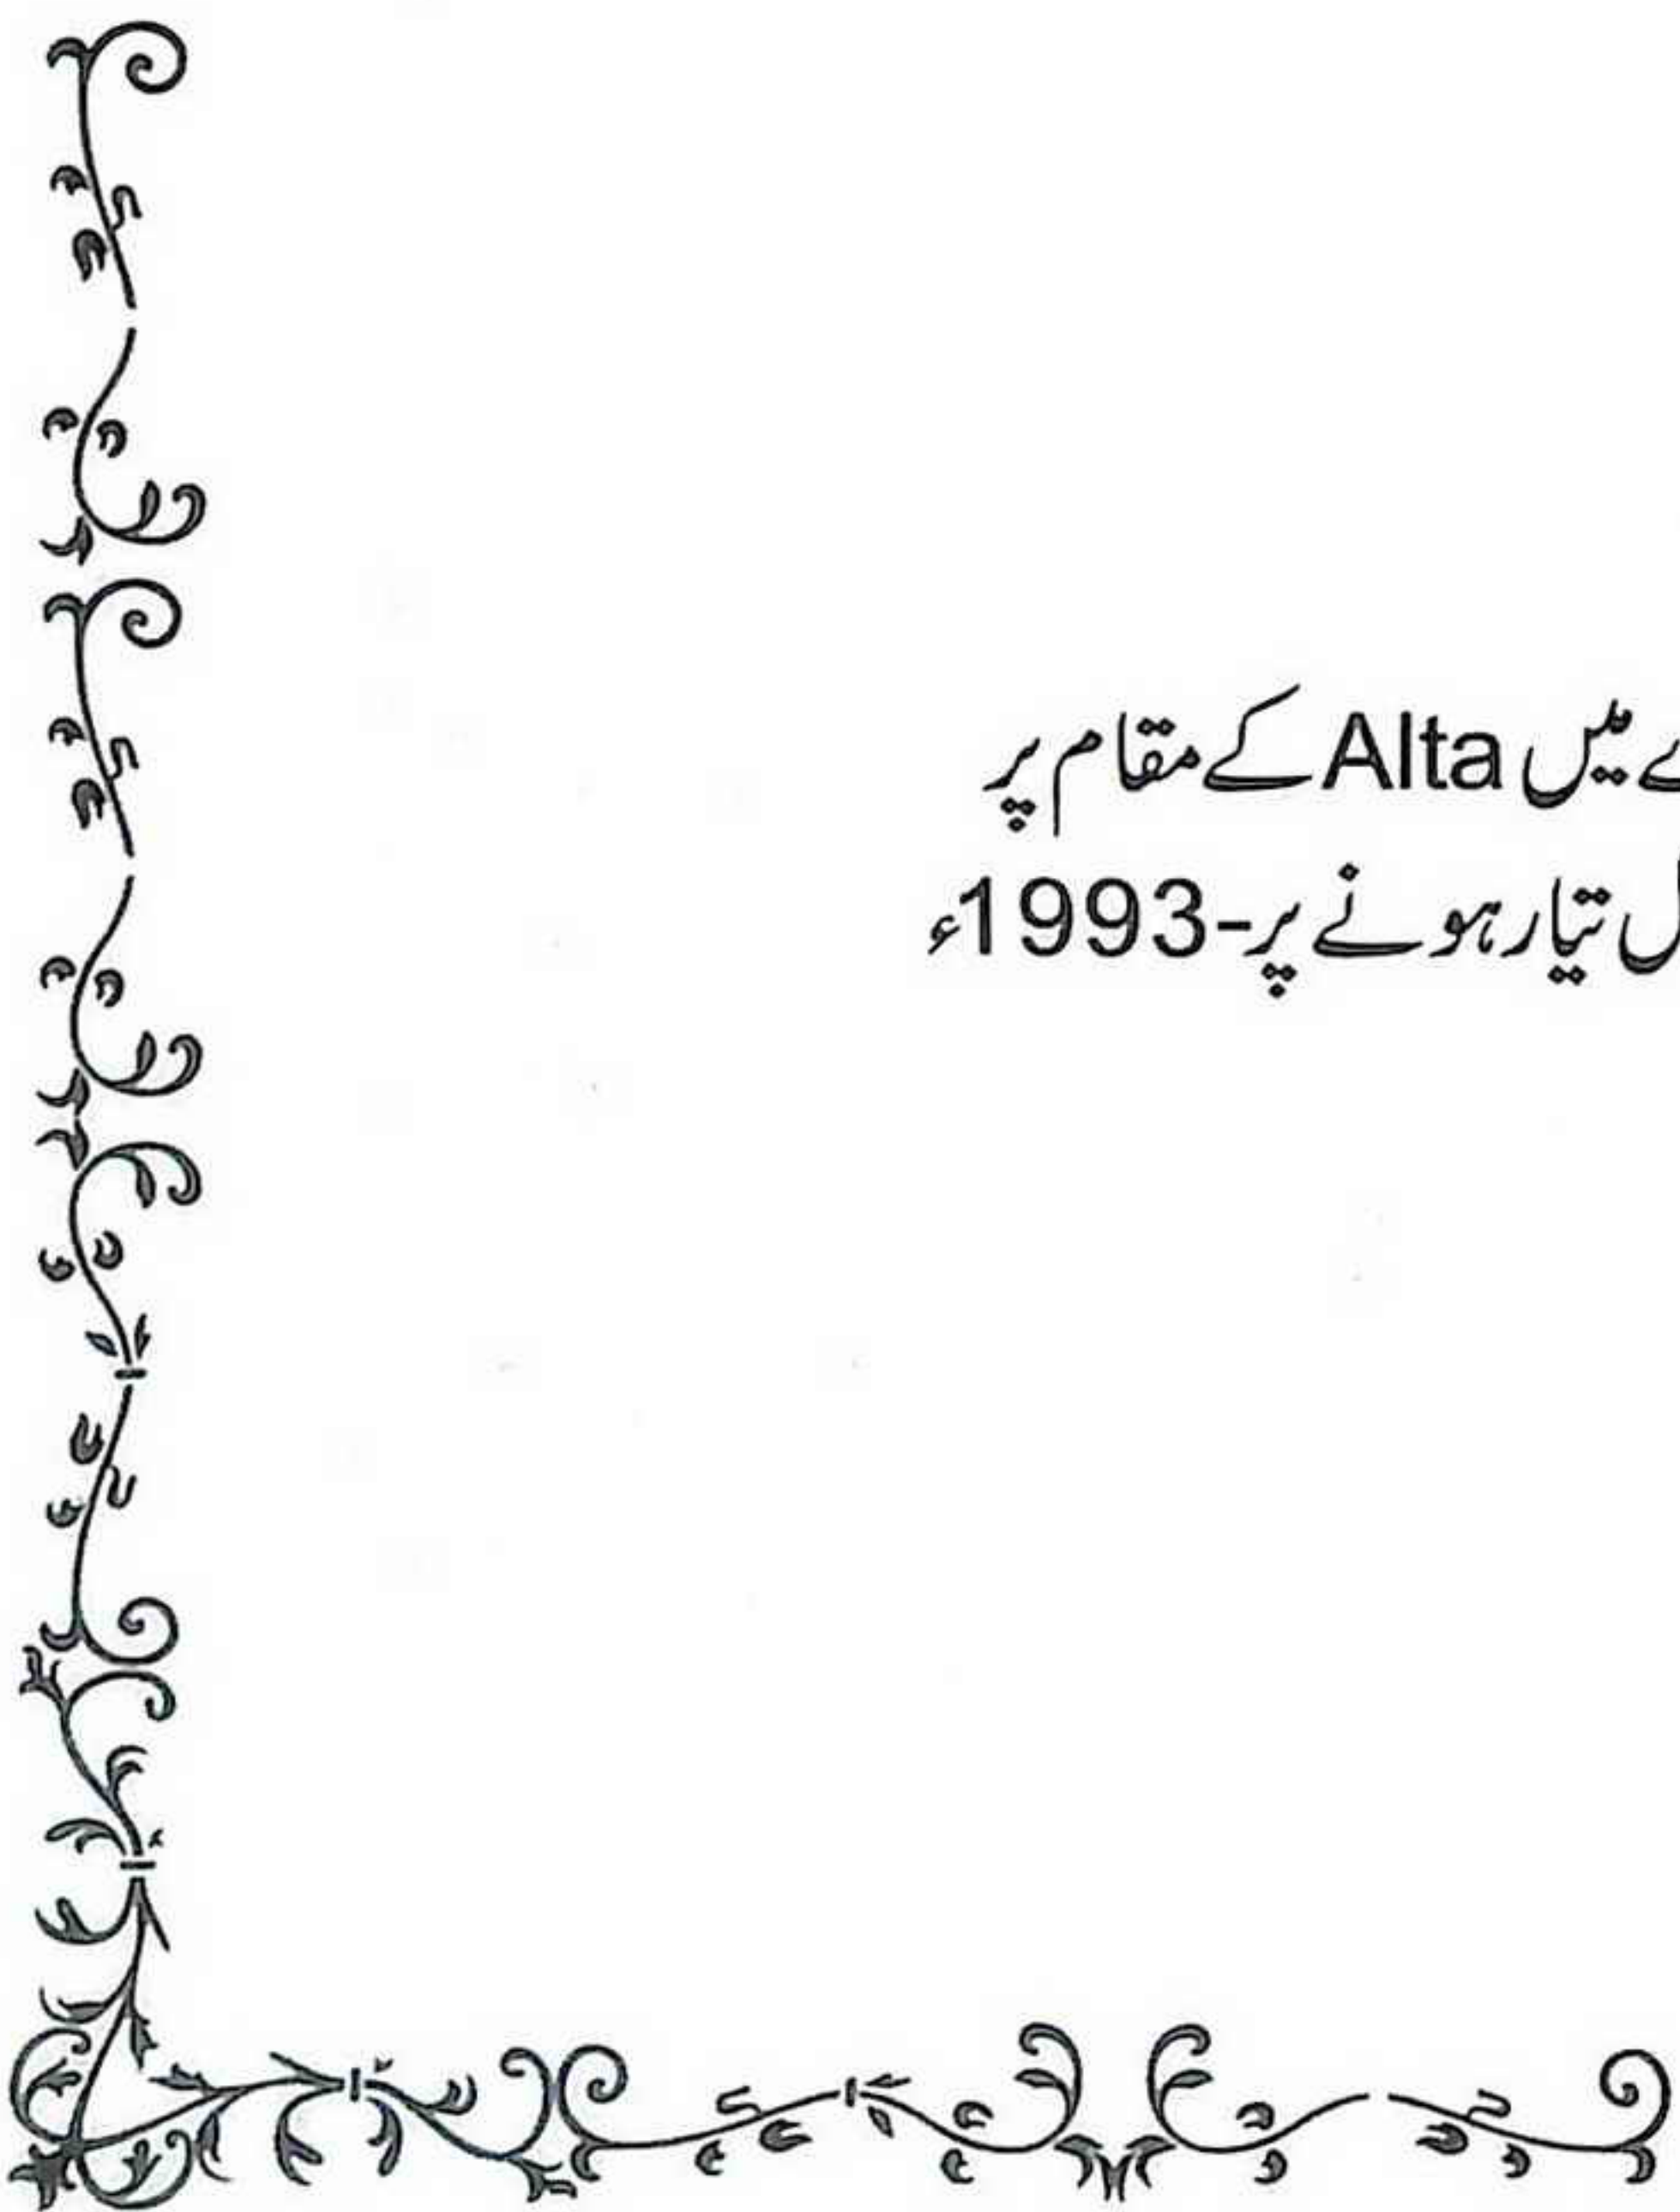 میں Alta کے مقام پر
تیار ہونے پر-1993ء